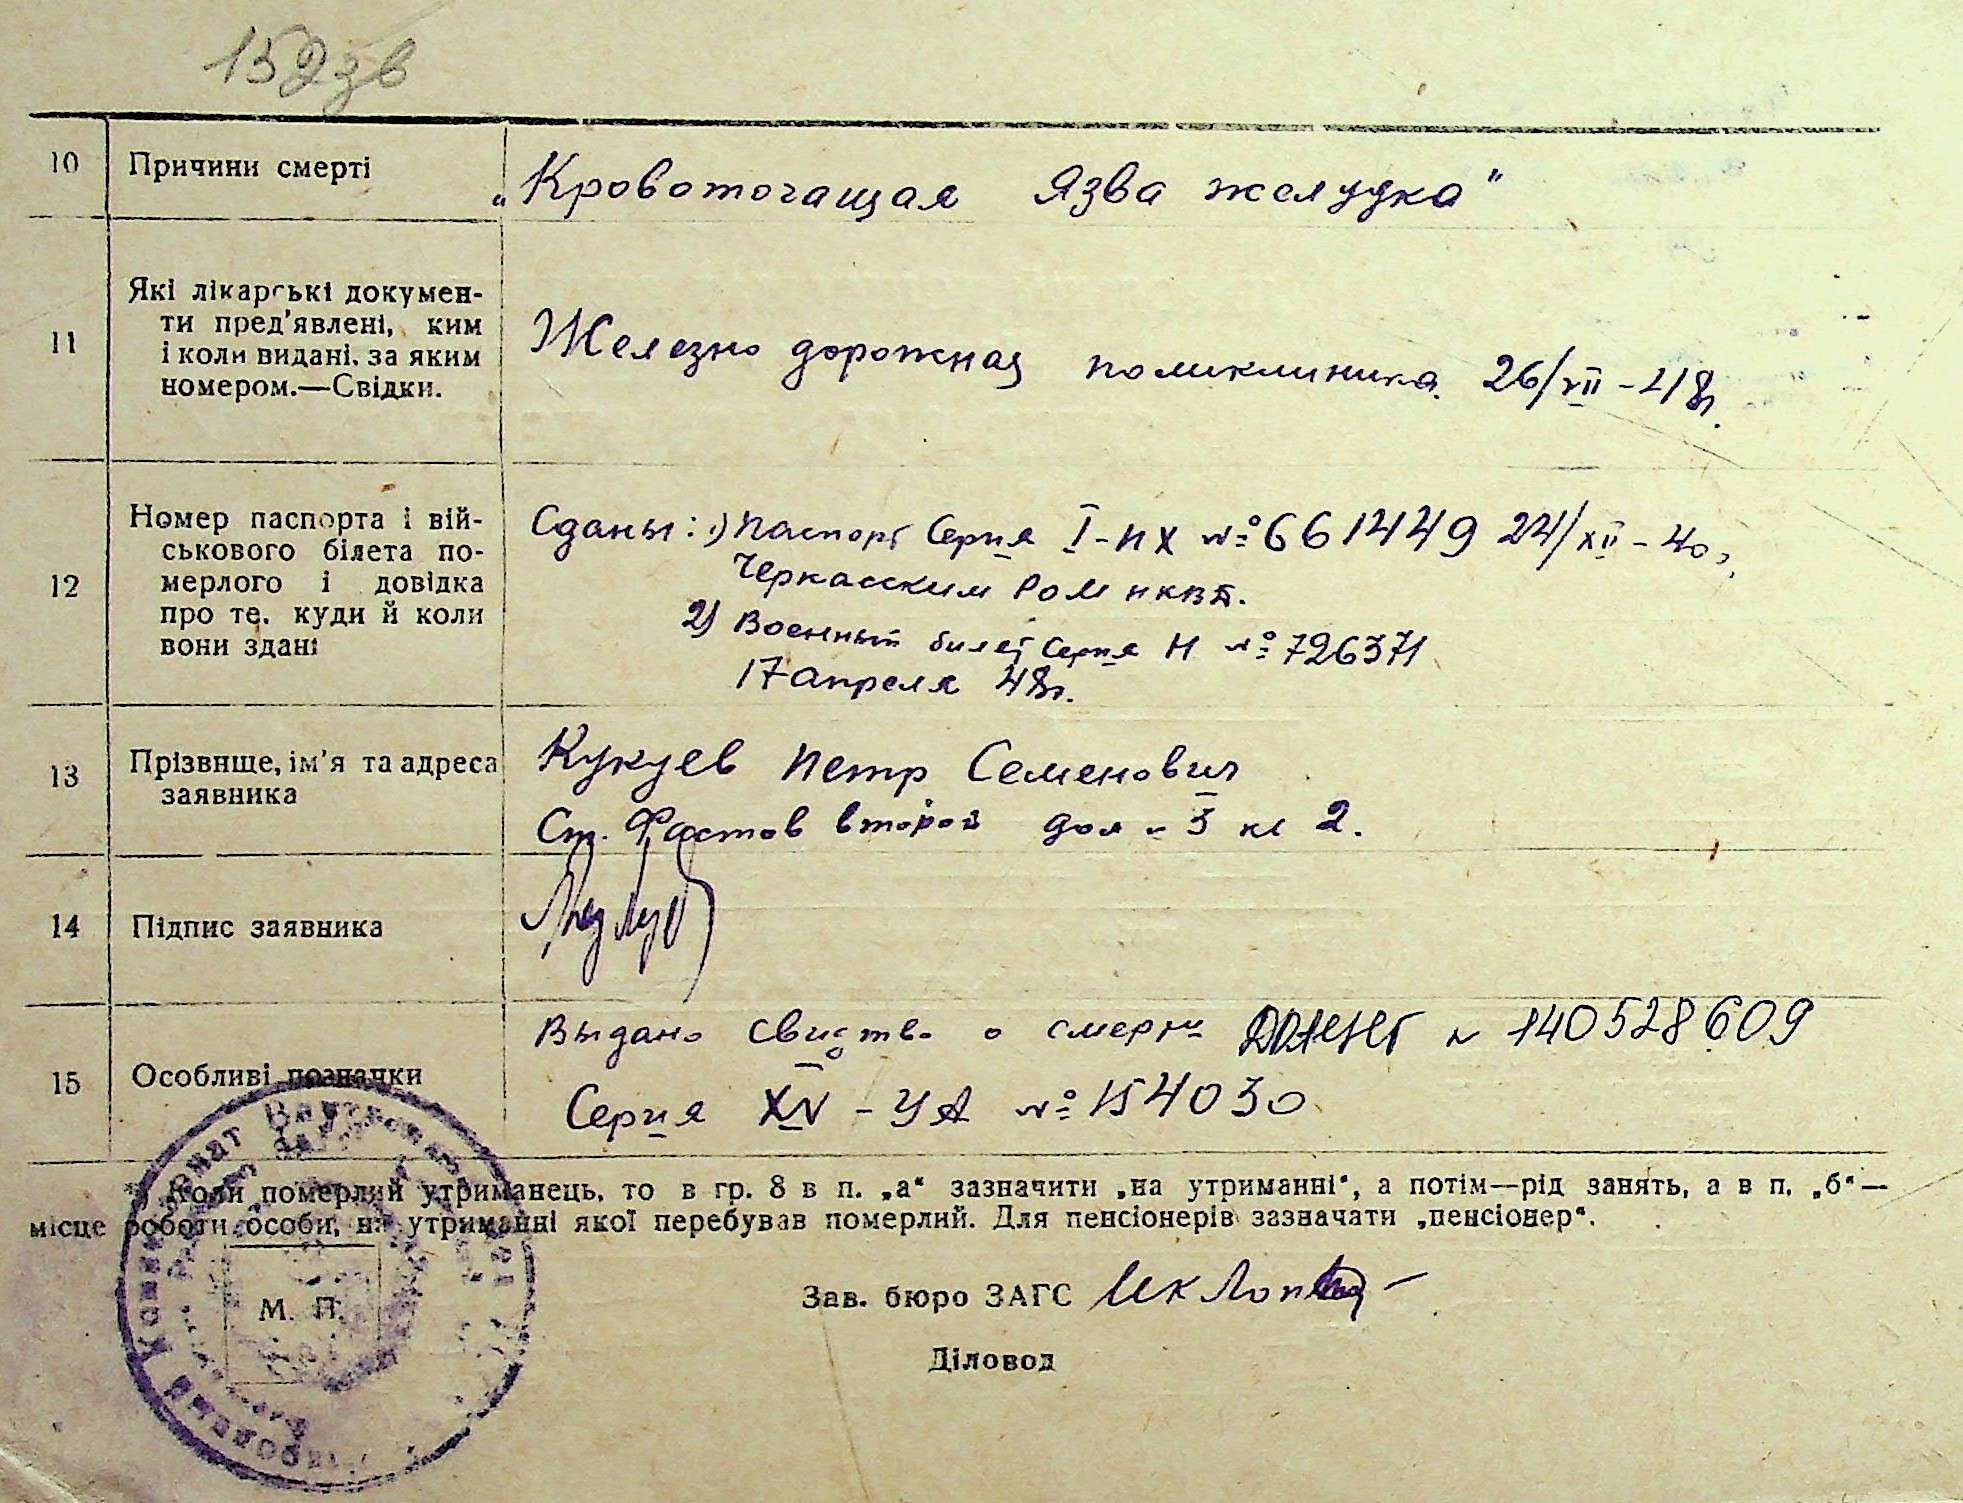 152зв
10 Причини смерті „Кровоточащая Язва желудка"
11 Які лікарські докумен-
ти пред'явлені, ким
і коли видані, за яким
номером.—Свідки.
Железно дорожная поликлиника. 26/VII-48г.
12 Номер паспорта і вій-
ськового білета по-
мерлого і довідка
про те, куди й коли
вони здані
Сданы: 1) Паспорт Серия I-НХ №661449 24/XII-40г.
Черкасским РОМ НКВД.
2) Военный билет Серия Н №726371
17 апреля 48г.
13 Прізвище, ім'я та адреса
заявника
Кукуев Петр Семенович
Ст. Фастов второй дом 3 кв 2.
14 Підпис заявника
15 Особливі позначки
Выдано свидтво о смерти № 140528609
Серия XV - УА №154030
*) Коли померлий утриманець, то в гр. 8 в п. „а“ зазначити „на утриманні“, а потім—рід занять, а в п. „б“—
місце роботи особи, на утриманні якої перебував померлий. Для пенсіонерів зазначати „пенсіонер“.
М. П.
Зав. бюро ЗАГС
Діловод